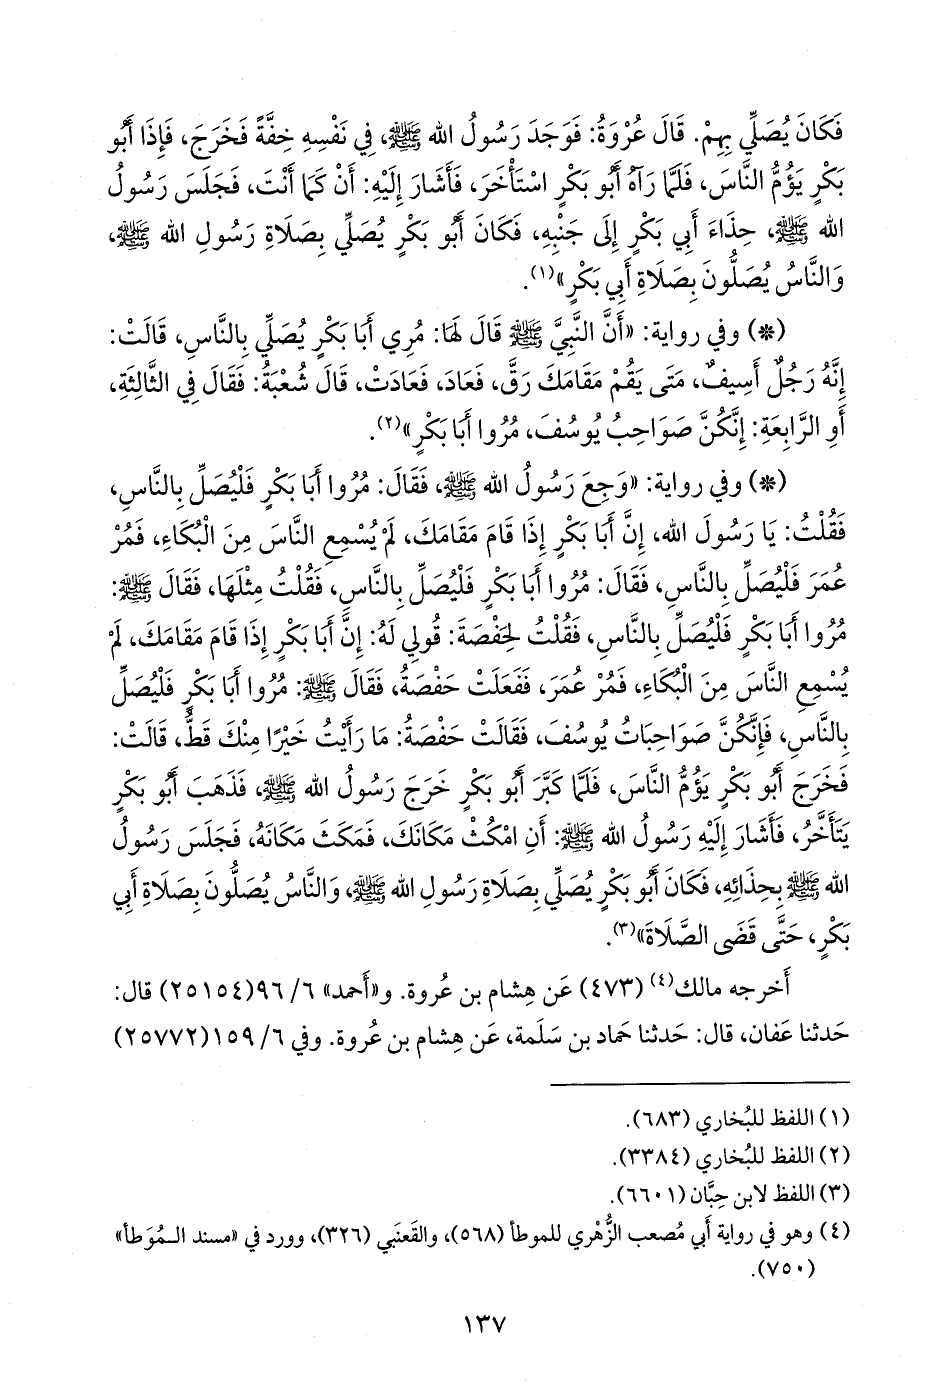 فَكَانَ يُصَلِّي بِهِمْ. قَالَ عُرْوَةُ: فَوَجَدَ رَسُولُ الله ﷺ، فِي نَفْسِهِ خِفَّةً فَخَرَجَ، فَإِذَا أَبُو
بَكْرٍ يَؤُمُّ النَّاسَ، فَلَمَّا رَآهُ أَبُو بَكْرٍ اسْتَأْخَرَ، فَأَشَارَ إِلَيْهِ: أَنْ كَمَا أَنْتَ، فَجَلَسَ رَسُولُ
الله ﷺ، حِذَاءَ أَبِي بَكْرٍ إِلَى جَنْبِهِ، فَكَانَ أَبُو بَكْرٍ يُصَلِّي بِصَلَاةِ رَسُولِ الله ﷺ،
وَالنَّاسُ يُصَلُّونَ بِصَلَاةِ أَبِي بَكْرٍ»(١).
(*) وفي رواية: «أَنَّ النَّبِيَّ ﷺ قَالَ لَهَا: مُرِي أَبَا بَكْرٍ يُصَلِّي بِالنَّاسِ، قَالَتْ:
إِنَّهُ رَجُلٌ أَسِيفٌ، مَتَى يَقُمْ مَقَامَكَ رَقَّ، فَعَادَ، فَعَادَتْ، قَالَ شُعْبَةُ: فَقَالَ فِي الثَّالِثَةِ،
أَوِ الرَّابِعَةِ: إِنَّكُنَّ صَوَاحِبُ يُوسُفَ، مُرُوا أَبَا بَكْرٍ»(٢).
(*) وفي رواية: «وَجِعَ رَسُولُ الله ﷺ، فَقَالَ: مُرُوا أَبَا بَكْرٍ فَلْيُصَلِّ بِالنَّاسِ،
فَقُلْتُ: يَا رَسُولَ الله، إِنَّ أَبَا بَكْرٍ إِذَا قَامَ مَقَامَكَ، لَمْ يُسْمِعِ النَّاسَ مِنَ الْبُكَاءِ، فَمُرْ
عُمَرَ فَلْيُصَلِّ بِالنَّاسِ، فَقَالَ: مُرُوا أَبَا بَكْرٍ فَلْيُصَلِّ بِالنَّاسِ، فَقُلْتُ مِثْلَهَا، فَقَالَ ﷺ:
مُرُوا أَبَا بَكْرٍ فَلْيُصَلِّ بِالنَّاسِ، فَقُلْتُ لِحَفْصَةَ: قُولِي لَهُ: إِنَّ أَبَا بَكْرٍ إِذَا قَامَ مَقَامَكَ، لَمْ
يُسْمِعِ النَّاسَ مِنَ الْبُكَاءِ، فَمُرْ عُمَرَ، فَفَعَلَتْ حَفْصَةُ، فَقَالَ ﷺ: مُرُوا أَبَا بَكْرٍ فَلْيُصَلِّ
بِالنَّاسِ، فَإِنَّكُنَّ صَوَاحِبَاتُ يُوسُفَ، فَقَالَتْ حَفْصَةُ: مَا رَأَيْتُ خَيْرًا مِنْكَ قَطُّ، قَالَتْ:
فَخَرَجَ أَبُو بَكْرٍ يَؤُمُّ النَّاسَ، فَلَمَّا كَبَّرَ أَبُو بَكْرٍ خَرَجَ رَسُولُ الله ﷺ، فَذَهَبَ أَبُو بَكْرٍ
يَتَأَخَّرُ، فَأَشَارَ إِلَيْهِ رَسُولُ الله ﷺ: أَنِ امْكُثْ مَكَانَكَ، فَمَكَثَ مَكَانَهُ، فَجَلَسَ رَسُولُ
الله ﷺ بِحِذَائِهِ، فَكَانَ أَبُو بَكْرٍ يُصَلِّي بِصَلَاةِ رَسُولِ الله ﷺ، وَالنَّاسُ يُصَلُّونَ بِصَلَاةِ أَبِي
بَكْرٍ، حَتَّى قَضَى الصَّلَاةَ»(٣).
أَخرجه مالك(٤) (٤٧٣) عَن هِشام بن عُروة. و«أَحمد» ٦/ ٩٦(٢٥١٥٤) قال:
حَدثنا عَفان، قال: حَدثنا حماد بن سَلَمة، عَن هِشام بن عُروة. وفي ٦/ ١٥٩(٢٥٧٧٢)
(١) اللفظ للبُخاري (٦٨٣).
(٢) اللفظ للبُخاري (٣٣٨٤).
(٣) اللفظ لابن حِبَّان (٦٦٠١).
(٤) وهو في رواية أَبي مُصعب الزُّهْري للموطأ (٥٦٨)، والقَعنَبي (٣٢٦)، وورد في «مسند الـمُوَطأ»
(٧٥٠).
١٣٧